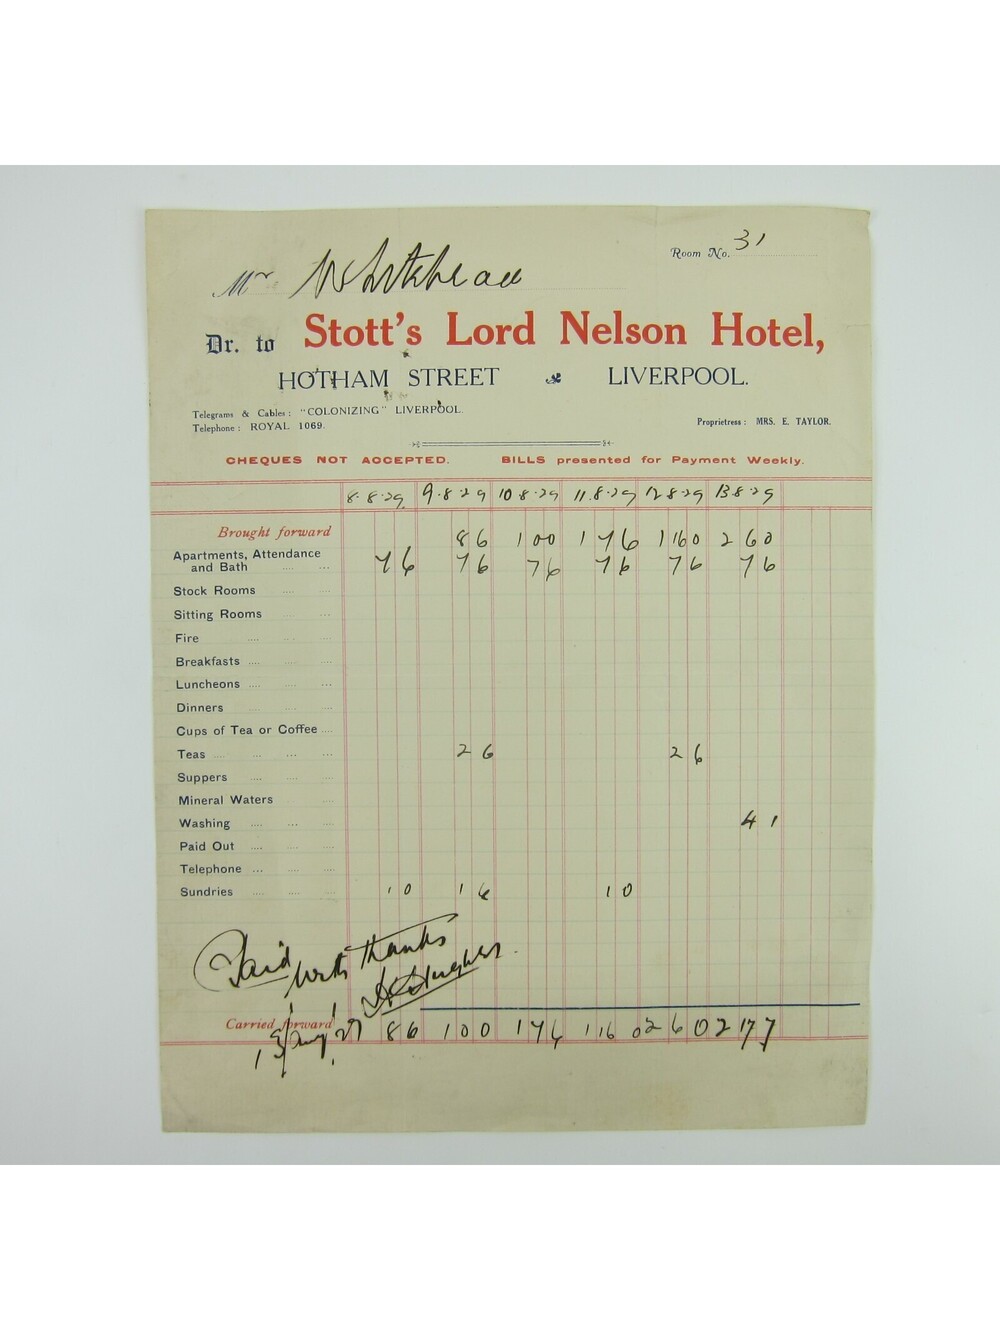 Mr Whitehead
Room No. 31
Dr. to Stott's Lord Nelson Hotel,
HOTHAM STREET LIVERPOOL.
Telegrams & Cables: "COLONIZING" LIVERPOOL.
Telephone: ROYAL 1069.
Proprietress: MRS. E. TAYLOR.
CHEQUES NOT ACCEPTED. BILLS presented for Payment Weekly.
8.8.29 9.8.29 10.8.29 11.8.29 12.8.29 13.8.29
Brought forward 8 6 1 0 0 1 7 6 1 16 0 2 6 0
Apartments, Attendance
and Bath 7 6 7 6 7 6 7 6 7 6 7 6
Stock Rooms
Sitting Rooms
Fire
Breakfasts
Luncheons
Dinners
Cups of Tea or Coffee
Teas 2 6 2 6
Suppers
Mineral Waters
Washing 4 1
Paid Out
Telephone
Sundries 1 0 1 6 1 0
Paid with thanks
Hughes
Carried forward 8 6 1 0 0 1 7 6 1 16 0 2 6 0 2 17 7
13 Aug 29